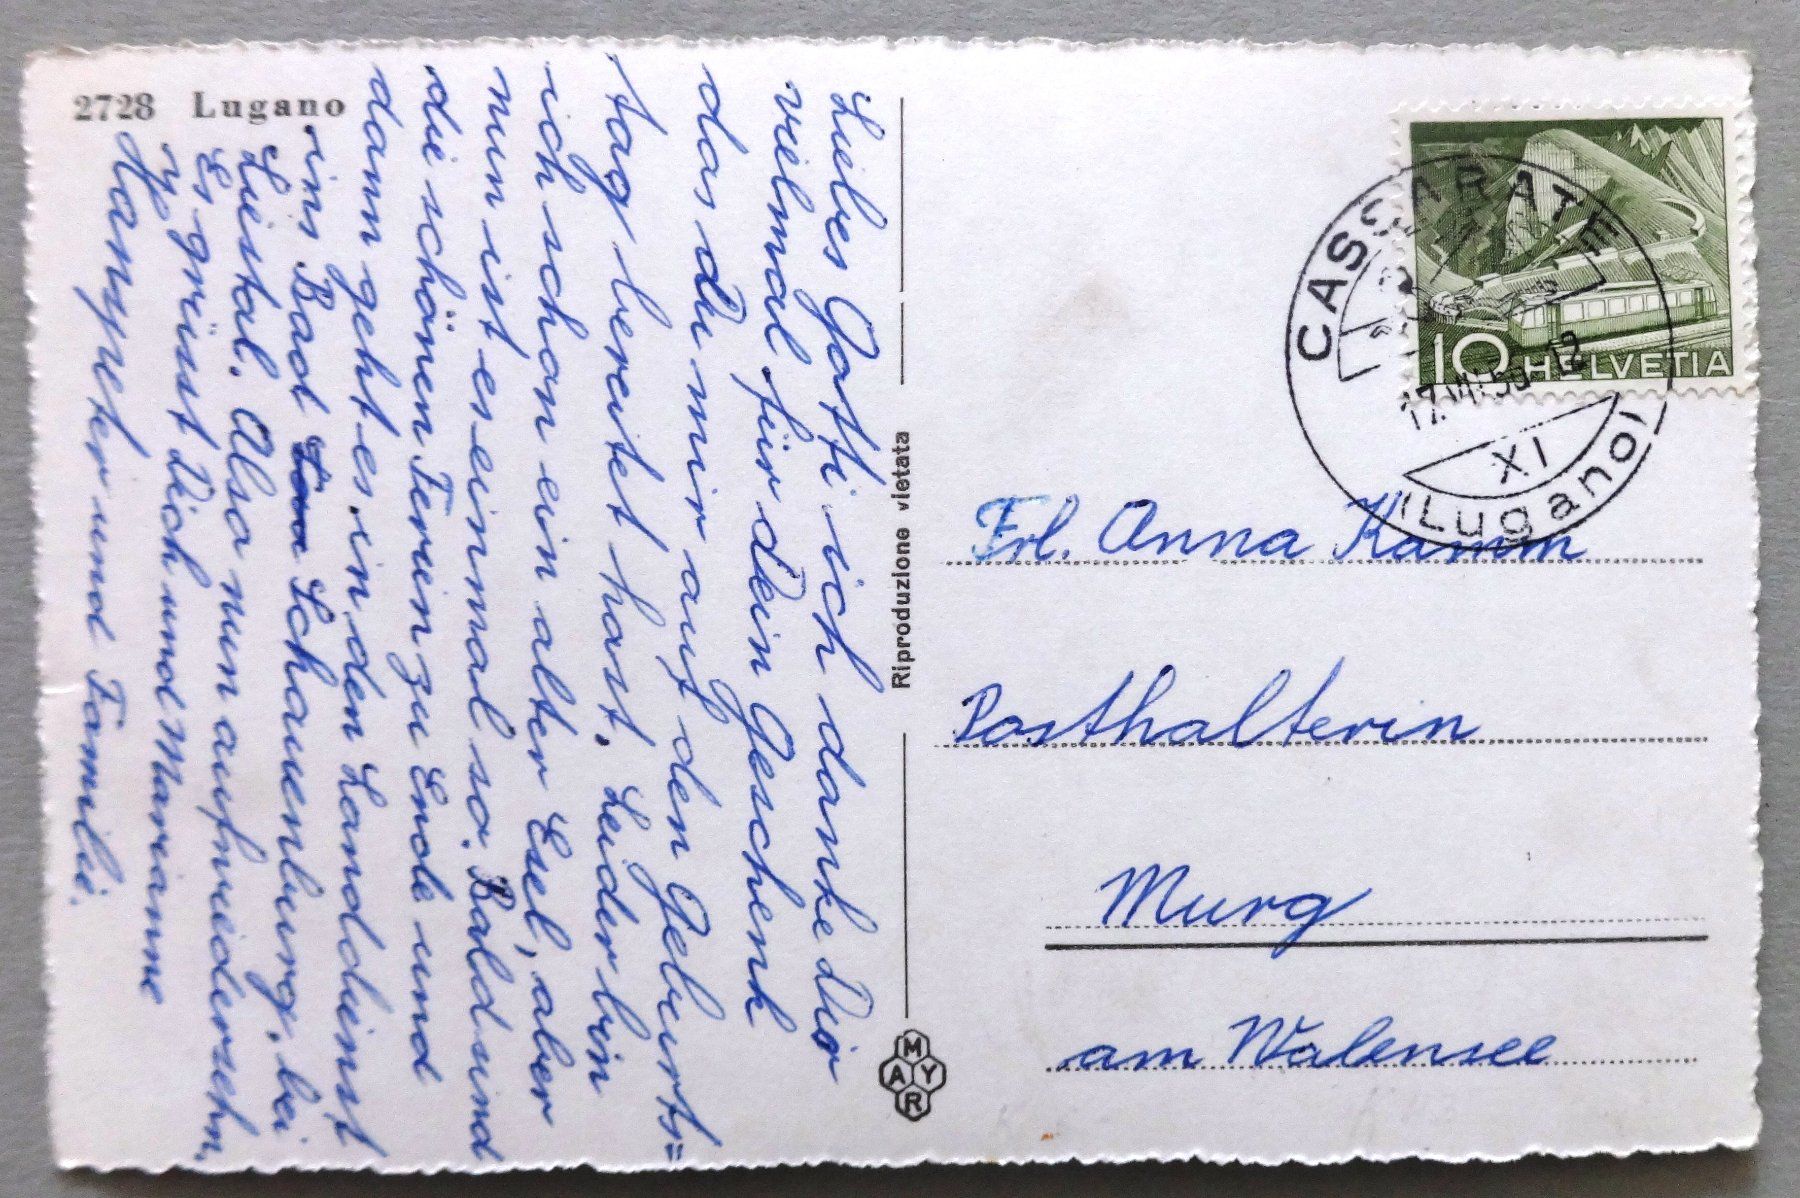 2728 Lugano
Liebes Gotti ich danke Dir
vielmal für dein Geschenk
das du mir auf den Geburts=
tag bereitet hast. Leider bin
ich schon ein alter Esel, aber
nun ist es einmal so. Bald sind
die schönen Ferien zu Ende und
dann geht es in den Landdienst
ins Bad Schauenburg, bei
Liestal. Also nun aufwiedersehn.
Es grüsst Dich und Marianne
Hanspeter und Familie.
Riproduzione vietata
MAYR
CASSARATE
17.VII.50-12
XI
(Lugano)
10 HELVETIA
Frl. Anna Kamm
Posthalterin
Murg
am Walensee